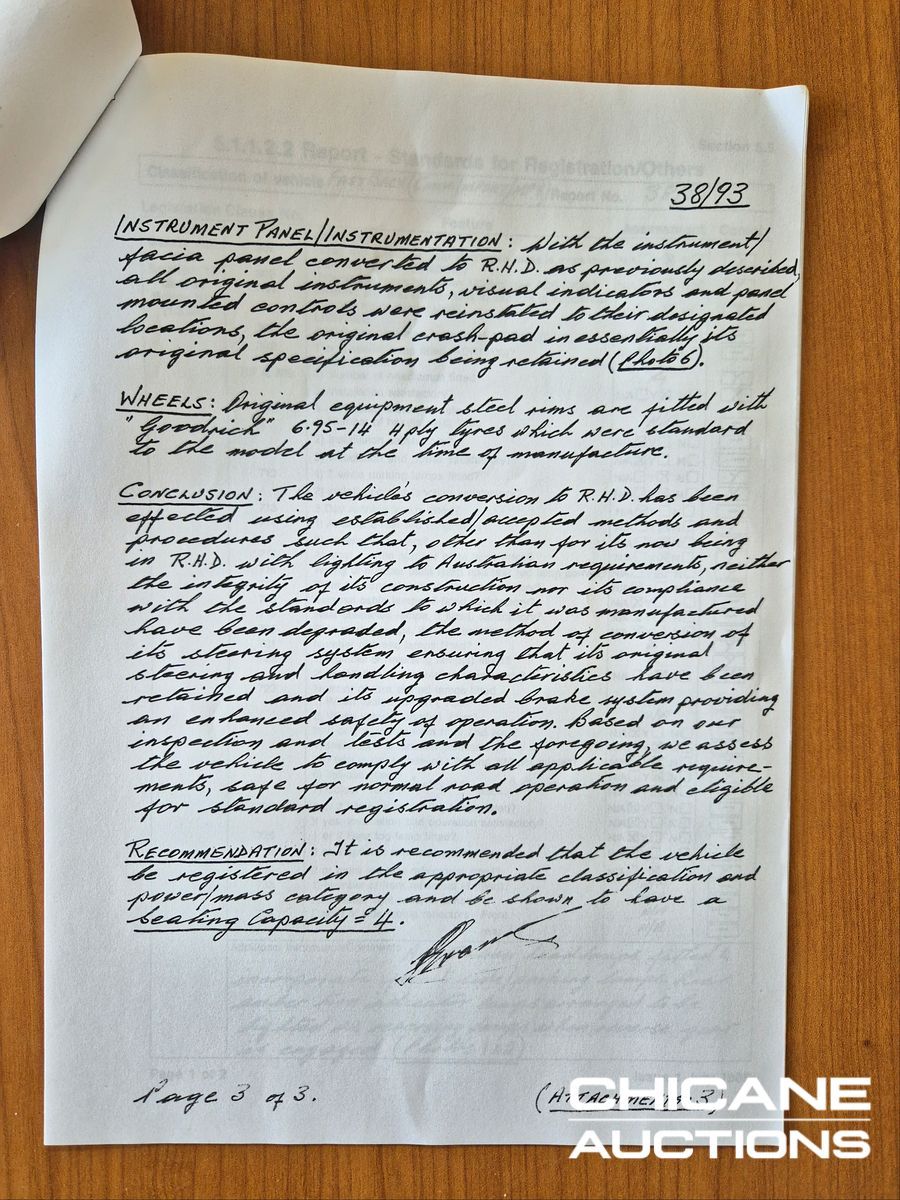 5.1.1.2.2 Report - Standards for Registration/Others
Section 5.5
Classification of vehicle
Report No.
38/93
INSTRUMENT PANEL/INSTRUMENTATION: With the instrument/
facia panel converted to R.H.D. as previously described,
all original instruments, visual indicators and panel
mounted controls were reinstated to their designated
locations, the original crash-pad in essentially its
original specification being retained (Photo 6).
WHEELS: Original equipment steel rims are fitted with
"Goodrich" 6.95-14 4ply tyres which were standard
to the model at the time of manufacture.
CONCLUSION: The vehicle's conversion to R.H.D. has been
effected using established/accepted methods and
procedures such that, other than for its now being
in R.H.D. with lighting to Australian requirements, neither
the integrity of its construction nor its compliance
with the standards to which it was manufactured
have been degraded, the method of conversion of
its steering system ensuring that its original
steering and handling characteristics have been
retained and its upgraded brake system providing
an enhanced safety of operation. Based on our
inspection and tests and the foregoing, we assess
the vehicle to comply with all applicable require-
ments, safe for normal road operation and eligible
for standard registration.
RECOMMENDATION: It is recommended that the vehicle
be registered in the appropriate classification and
power/mass category and be shown to have a
Seating Capacity = 4.
Page 1 of 2
Page 3 of 3.
(ATTACHMENTS 3)
CHICANE
AUCTIONS